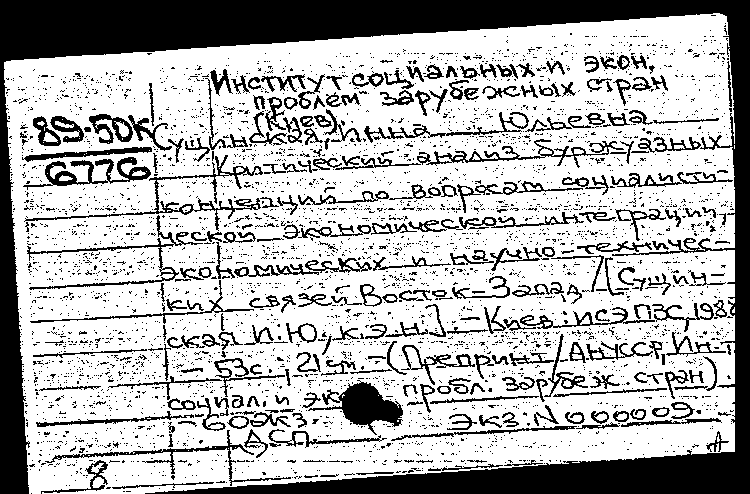 Институт социальных и экон.
проблем зарубежных стран
(Киев).
89-50К
6776
Сущинская, Инна Юльевна.
Критический анализ буржуазных
концепций по вопросам социалисти-
ческой экономической интеграции,
экономических и научно-техничес-
ких связей Восток-Запад / [Сущин-
ская И.Ю., к.э.н.]. - Киев: ИСЭПЗС, 1988
- 53с.; 21см. - (Препринт / АН УССР, Ин-т
социал. и эк пробл. зарубеж. стран).
- 60экз. Экз: N 000009.
ДСП.
8 А